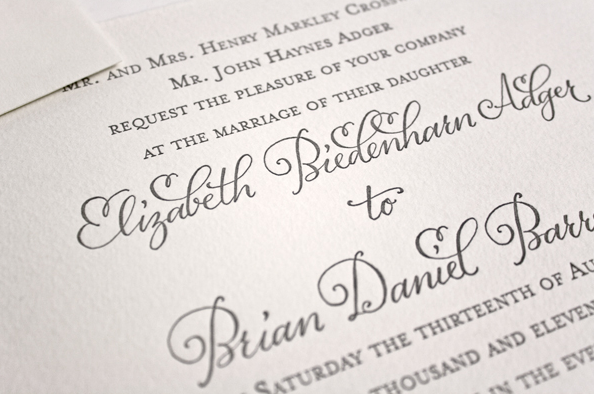 Mr. and Mrs. Henry Markley
Mr. John Haynes Adger
request the pleasure of your company
at the marriage of their daughter
Elizabeth Biedenharn Adger
to
Brian Daniel
Saturday the thirteenth of
thousand and eleven
in the